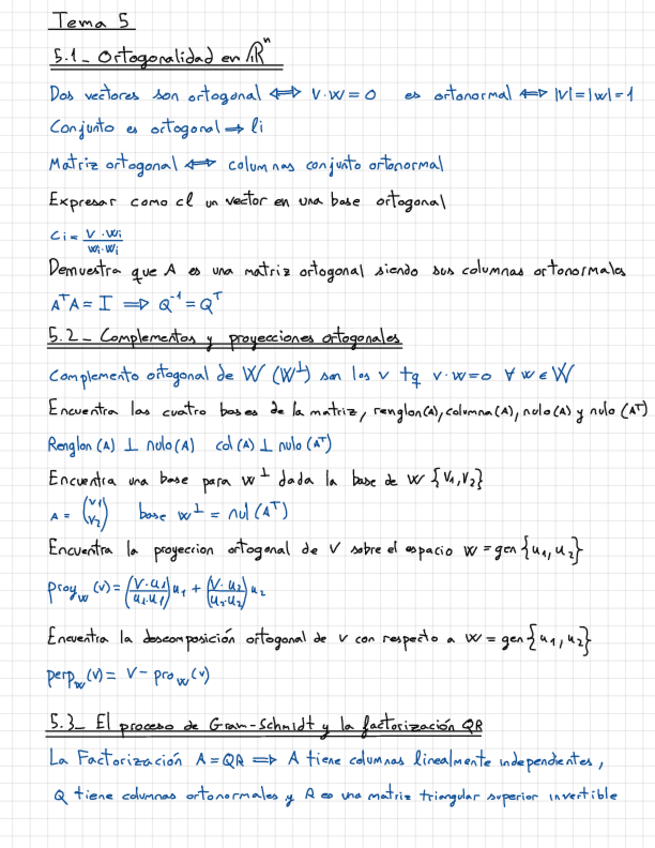 Tema 5
5.1_ Ortogonalidad en ℝⁿ
Dos vectores son ortogonal ⟺ v·w = 0 es ortonormal ⟺ |v|=|w|=1
Conjunto es ortogonal → li
Matriz ortogonal ⟺ columnas conjunto ortonormal
Expresar como cl un vector en una base ortogonal
Ci = v·wi / wi·wi
Demuestra que A es una matriz ortogonal siendo sus columnas ortonormales
AᵀA = I ⟹ Q⁻¹ = Qᵀ
5.2_ Complementos y proyecciones ortogonales
Complemento ortogonal de W (W⊥) son los v tq v·w=0 ∀ w ∈ W
Encuentra las cuatro bases de la matriz, renglon(A), columna(A), nulo(A) y nulo (Aᵀ)
Renglon (A) ⊥ nulo(A) col (A) ⊥ nulo(Aᵀ)
Encuentra una base para w⊥ dada la base de W {V₁,V₂}
A = (v1 v2) base w⊥ = nul(Aᵀ)
Encuentra la proyeccion ortogonal de V sobre el espacio W = gen{u₁,u₂}
Proy_w (v) = (v·u₁/u₁·u₁)u₁ + (v·u₂/u₂·u₂)u₂
Encuentra la descomposición ortogonal de v con respecto a W = gen{u₁,u₂}
perp_w(v) = v - pro_w(v)
5.3_ El proceso de Gram-Schmidt y la factorización QR
La Factorización A = QR ⟹ A tiene columnas linealmente independientes,
Q tiene columnas ortonormales y R es una matriz triangular superior invertible